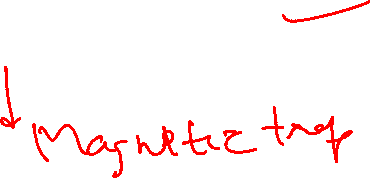 ↓ Magnetic trap